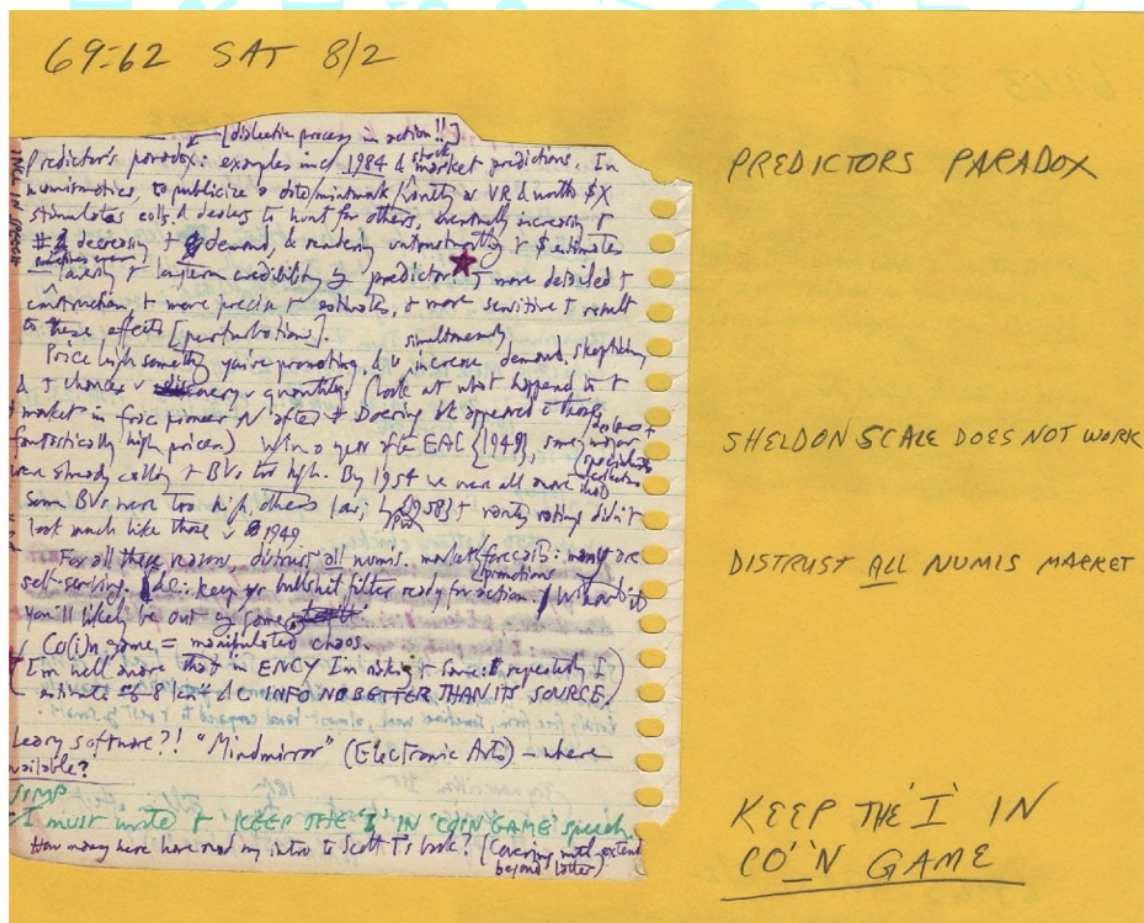 69-62 SAT 8/2
[dialectic process in action!!]
Predictor's paradox: examples incl 1984 & stock market predictions. In
numismatics, to publicize a date/mintmark/variety as VR & worth $X
stimulates colls. & dealers to hunt for others, eventually increasing
# decreasing demand, & rendering untrustworthy $ estimates
sometimes even longterm credibility of predictor. ★ more detailed
construction, more precise estimates, more sensitive result
to these effects [perturbations].
Price high something you're promoting, & simultaneously increase demand, skepticism
& chances quantities. (Look at what happened to
market in after Doering bk appeared those
fantastically high prices) W/in a year after EAC {1949}, some major specialists
were already calling BVs too high. By 1954 we were all aware that
some BVs were too high, others low; {1958} rarity ratings didn't
look much like those 1949
For all these reasons, distrust all numis. market forecasts: many are promotions
self-serving. keep yr bullshit filter ready for action. Without it
you'll likely be out of game.
Co(i)n game = manipulated chaos.
I'm well aware that in ENCY I'm risking same: repeatedly I
estimate of "8 kn" &c INFO NO BETTER THAN ITS SOURCE.
Leary software?! "Mindmirror" (Electronic Arts) – where
available?
JIMP
I must write KEEP THE 'I' IN 'COIN GAME' speech
How many here have read my intro to Scott T's book? (Covering mtl extend
beyond latter)
INCL IN SPEECH
PREDICTORS PARADOX
SHELDON SCALE DOES NOT WORK
DISTRUST ALL NUMIS MARKET
KEEP THE 'I' IN
CO'_'N GAME